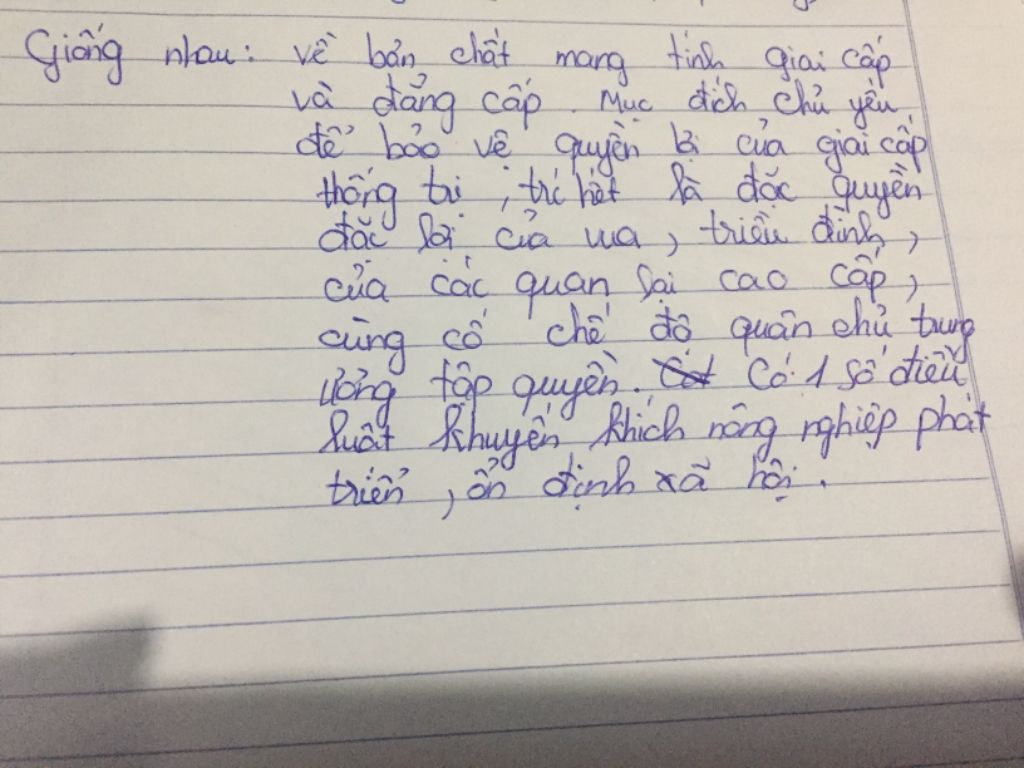 Giống nhau: về bản chất mang tính giai cấp
và đẳng cấp. Mục đích chủ yếu
để bảo vệ quyền lợi của giai cấp
thống trị, trc hết là đặc quyền
đặc lợi của vua, triều đình,
của các quan lại cao cấp,
củng cố chế độ quân chủ trung
ương tập quyền. Có 1 số điều
luật khuyến khích nông nghiệp phát
triển, ổn định xã hội.